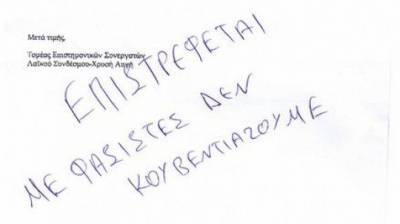 Μετά τιμής,
Τομέας Επιστημονικών Συνεργατών
Λαϊκού Συνδέσμου-Χρυσή Αυγή
ΕΠΙΣΤΡΕΦΕΤΑΙ
ΜΕ ΦΑΣΙΣΤΕΣ ΔΕΝ
ΚΟΥΒΕΝΤΙΑΖΟΥΜΕ